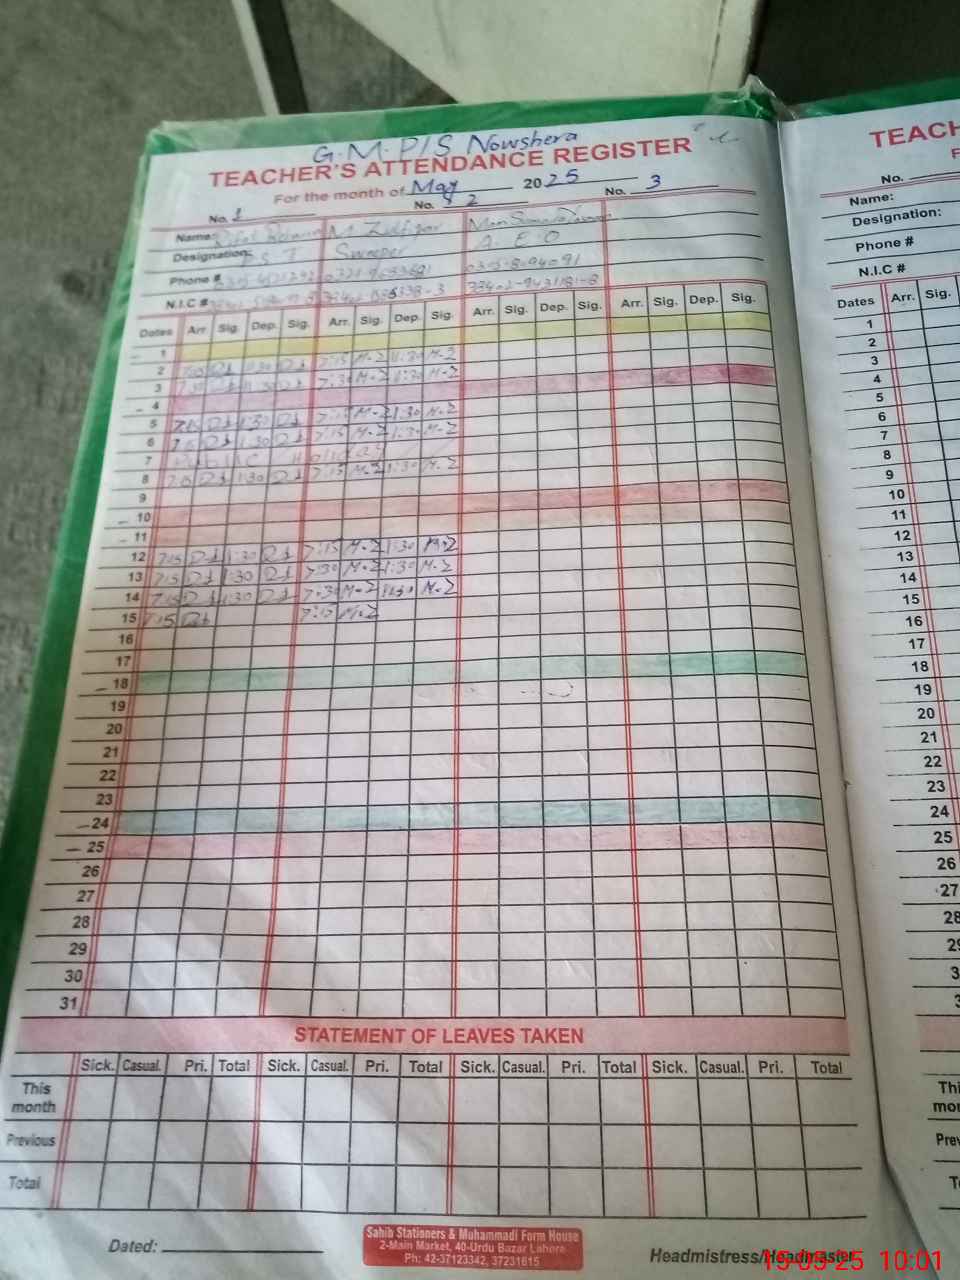 G.M.P/S Nowshera
TEACHER'S ATTENDANCE REGISTER
For the month of May 2025
No. 1 No. 2 No. 3
Name: M. Zulfiqar
Designation: S T Sweeper A. E. O
Phone #
N.I.C #
Dates Arr. Sig. Dep. Sig. Arr. Sig. Dep. Sig. Arr. Sig. Dep. Sig. Arr. Sig. Dep. Sig.
1
2 7:15 1:30 7:15 M-Z 11:30 M-Z
3 7:30 M-Z 1:30 M-Z
4
5 7:15 1:30 7:15 M-Z 1:30 M-Z
6 7:15 1:30 7:15 M-Z 1:30 M-Z
7 Public Holiday
8 7:15 1:30 7:15 M-Z 1:30 M-Z
9
10
11
12 7:15 1:30 7:15 M-Z 1:30 M-Z
13 7:15 1:30 7:30 M-Z 1:30 M-Z
14 7:15 1:30 7:30 M-Z 1:30 M-Z
15 7:15 7:15 M-Z
16
17
18
19
20
21
22
23
24
25
26
27
28
29
30
31
STATEMENT OF LEAVES TAKEN
Sick. Casual. Pri. Total Sick. Casual. Pri. Total Sick. Casual. Pri. Total Sick. Casual. Pri. Total
This month
Previous
Total
Dated:
Sahib Stationers & Muhammadi Form House
2-Main Market, 40-Urdu Bazar Lahore
Ph: 42-37123342, 37231615
Headmistress/Headmaster
TEACH
F
No.
Name:
Designation:
Phone #
N.I.C #
Dates Arr. Sig.
1
2
3
4
5
6
7
8
9
10
11
12
13
14
15
16
17
18
19
20
21
22
23
24
25
26
27
28
29
3
3
Thi
mo
Prev
T
15-05-25 10:01